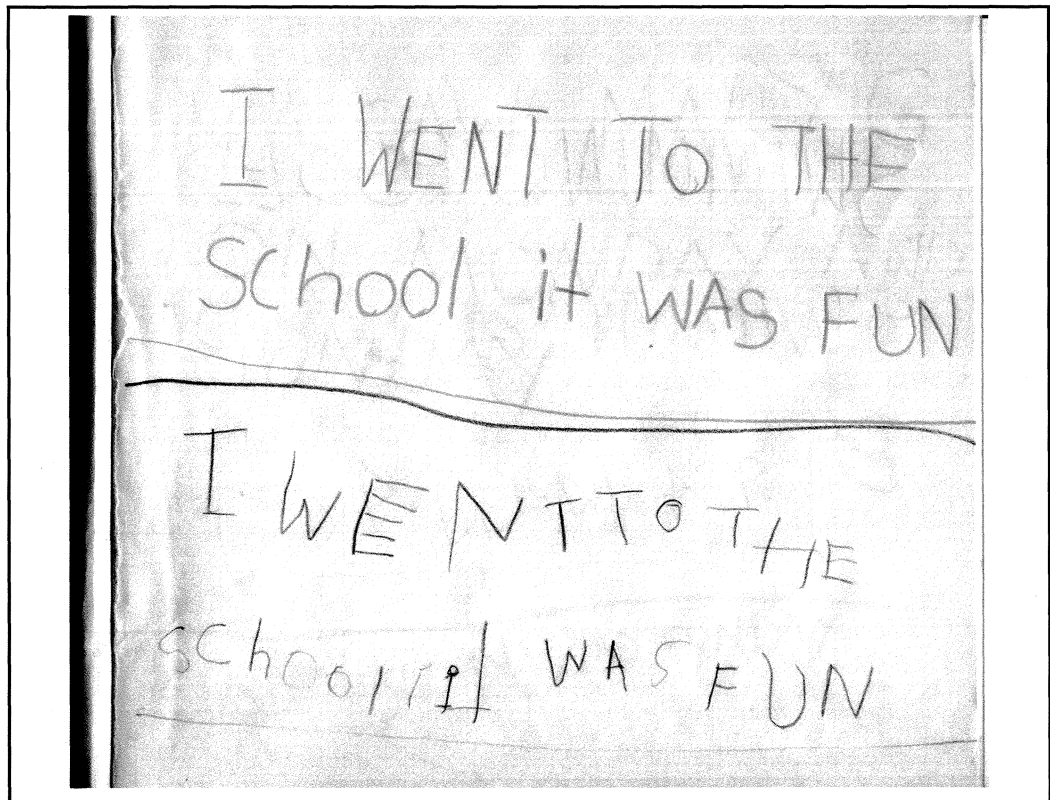 I WENT TO THE
SChool it WAS FUN
I WENT TO THE
SChool it WAS FUN